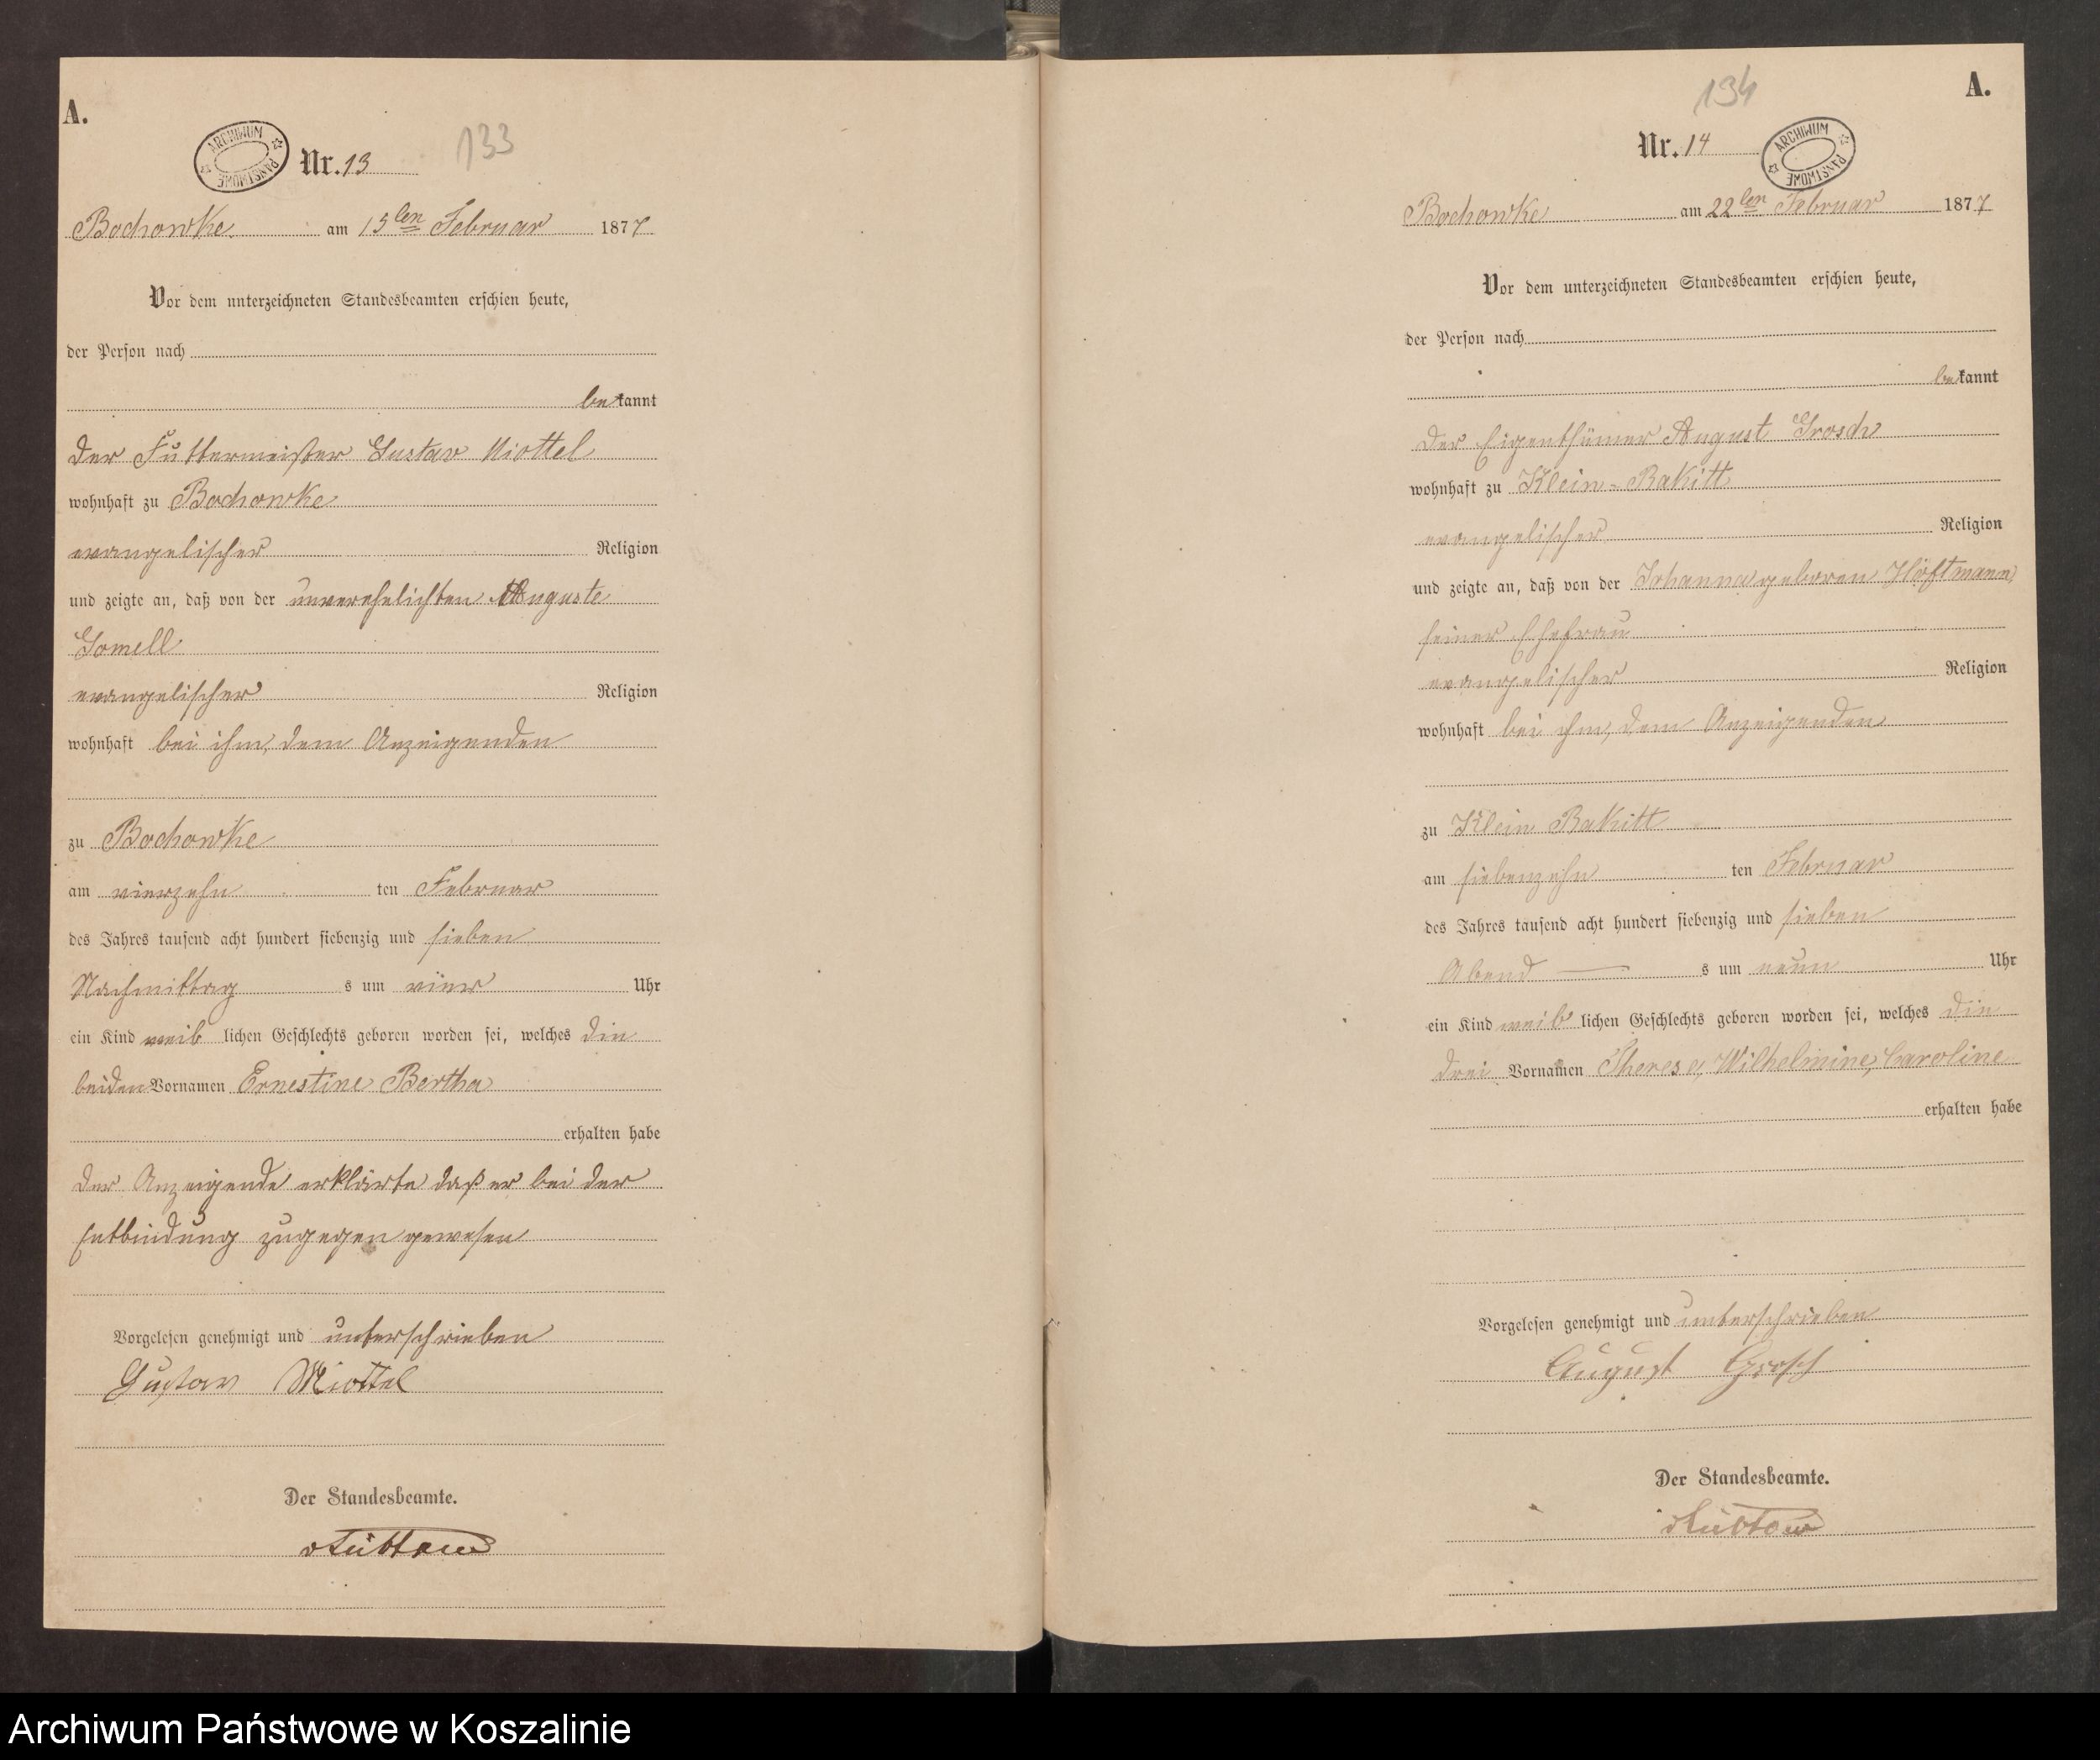 A.
ARCHIWUM PAŃSTWOWE
Nr. 13
133
Bochowke am 15ten Februar 1877
Vor dem unterzeichneten Standesbeamten erschien heute,
der Person nach
bekannt
der Futtermeister Gustav Miottel
wohnhaft zu Bochowke
evangelischer Religion
und zeigte an, daß von der unverehelichten Auguste
Gomell
evangelischer Religion
wohnhaft bei ihm, dem Anzeigenden
zu Bochowke
am vierzehn ten Februar
des Jahres tausend acht hundert siebenzig und sieben
Nachmittag s um vier Uhr
ein Kind weib lichen Geschlechts geboren worden sei, welches die
beiden Vornamen Ernestine Bertha
erhalten habe
der Anzeigende erklärte daß er bei der
Entbindung zugegen gewesen
Vorgelesen genehmigt und unterschrieben
Gustav Miottel
Der Standesbeamte.
A.
134
Nr. 14
ARCHIWUM PAŃSTWOWE
Bochowke am 22ten Februar 1877
Vor dem unterzeichneten Standesbeamten erschien heute,
der Person nach
bekannt
der Eigenthümer August Grosch
wohnhaft zu Klein-Rakitt
evangelischer Religion
und zeigte an, daß von der Johanna geboren Höftmann
seiner Ehefrau
evangelischer Religion
wohnhaft bei ihm, dem Anzeigenden
zu Klein Rakitt
am siebenzehn ten Februar
des Jahres tausend acht hundert siebenzig und sieben
Abend s um neun Uhr
ein Kind weib lichen Geschlechts geboren worden sei, welches die
drei Vornamen Therese, Wilhelmine, Caroline
erhalten habe
Vorgelesen genehmigt und unterschrieben
August Grosch
Der Standesbeamte.
Archiwum Państwowe w Koszalinie